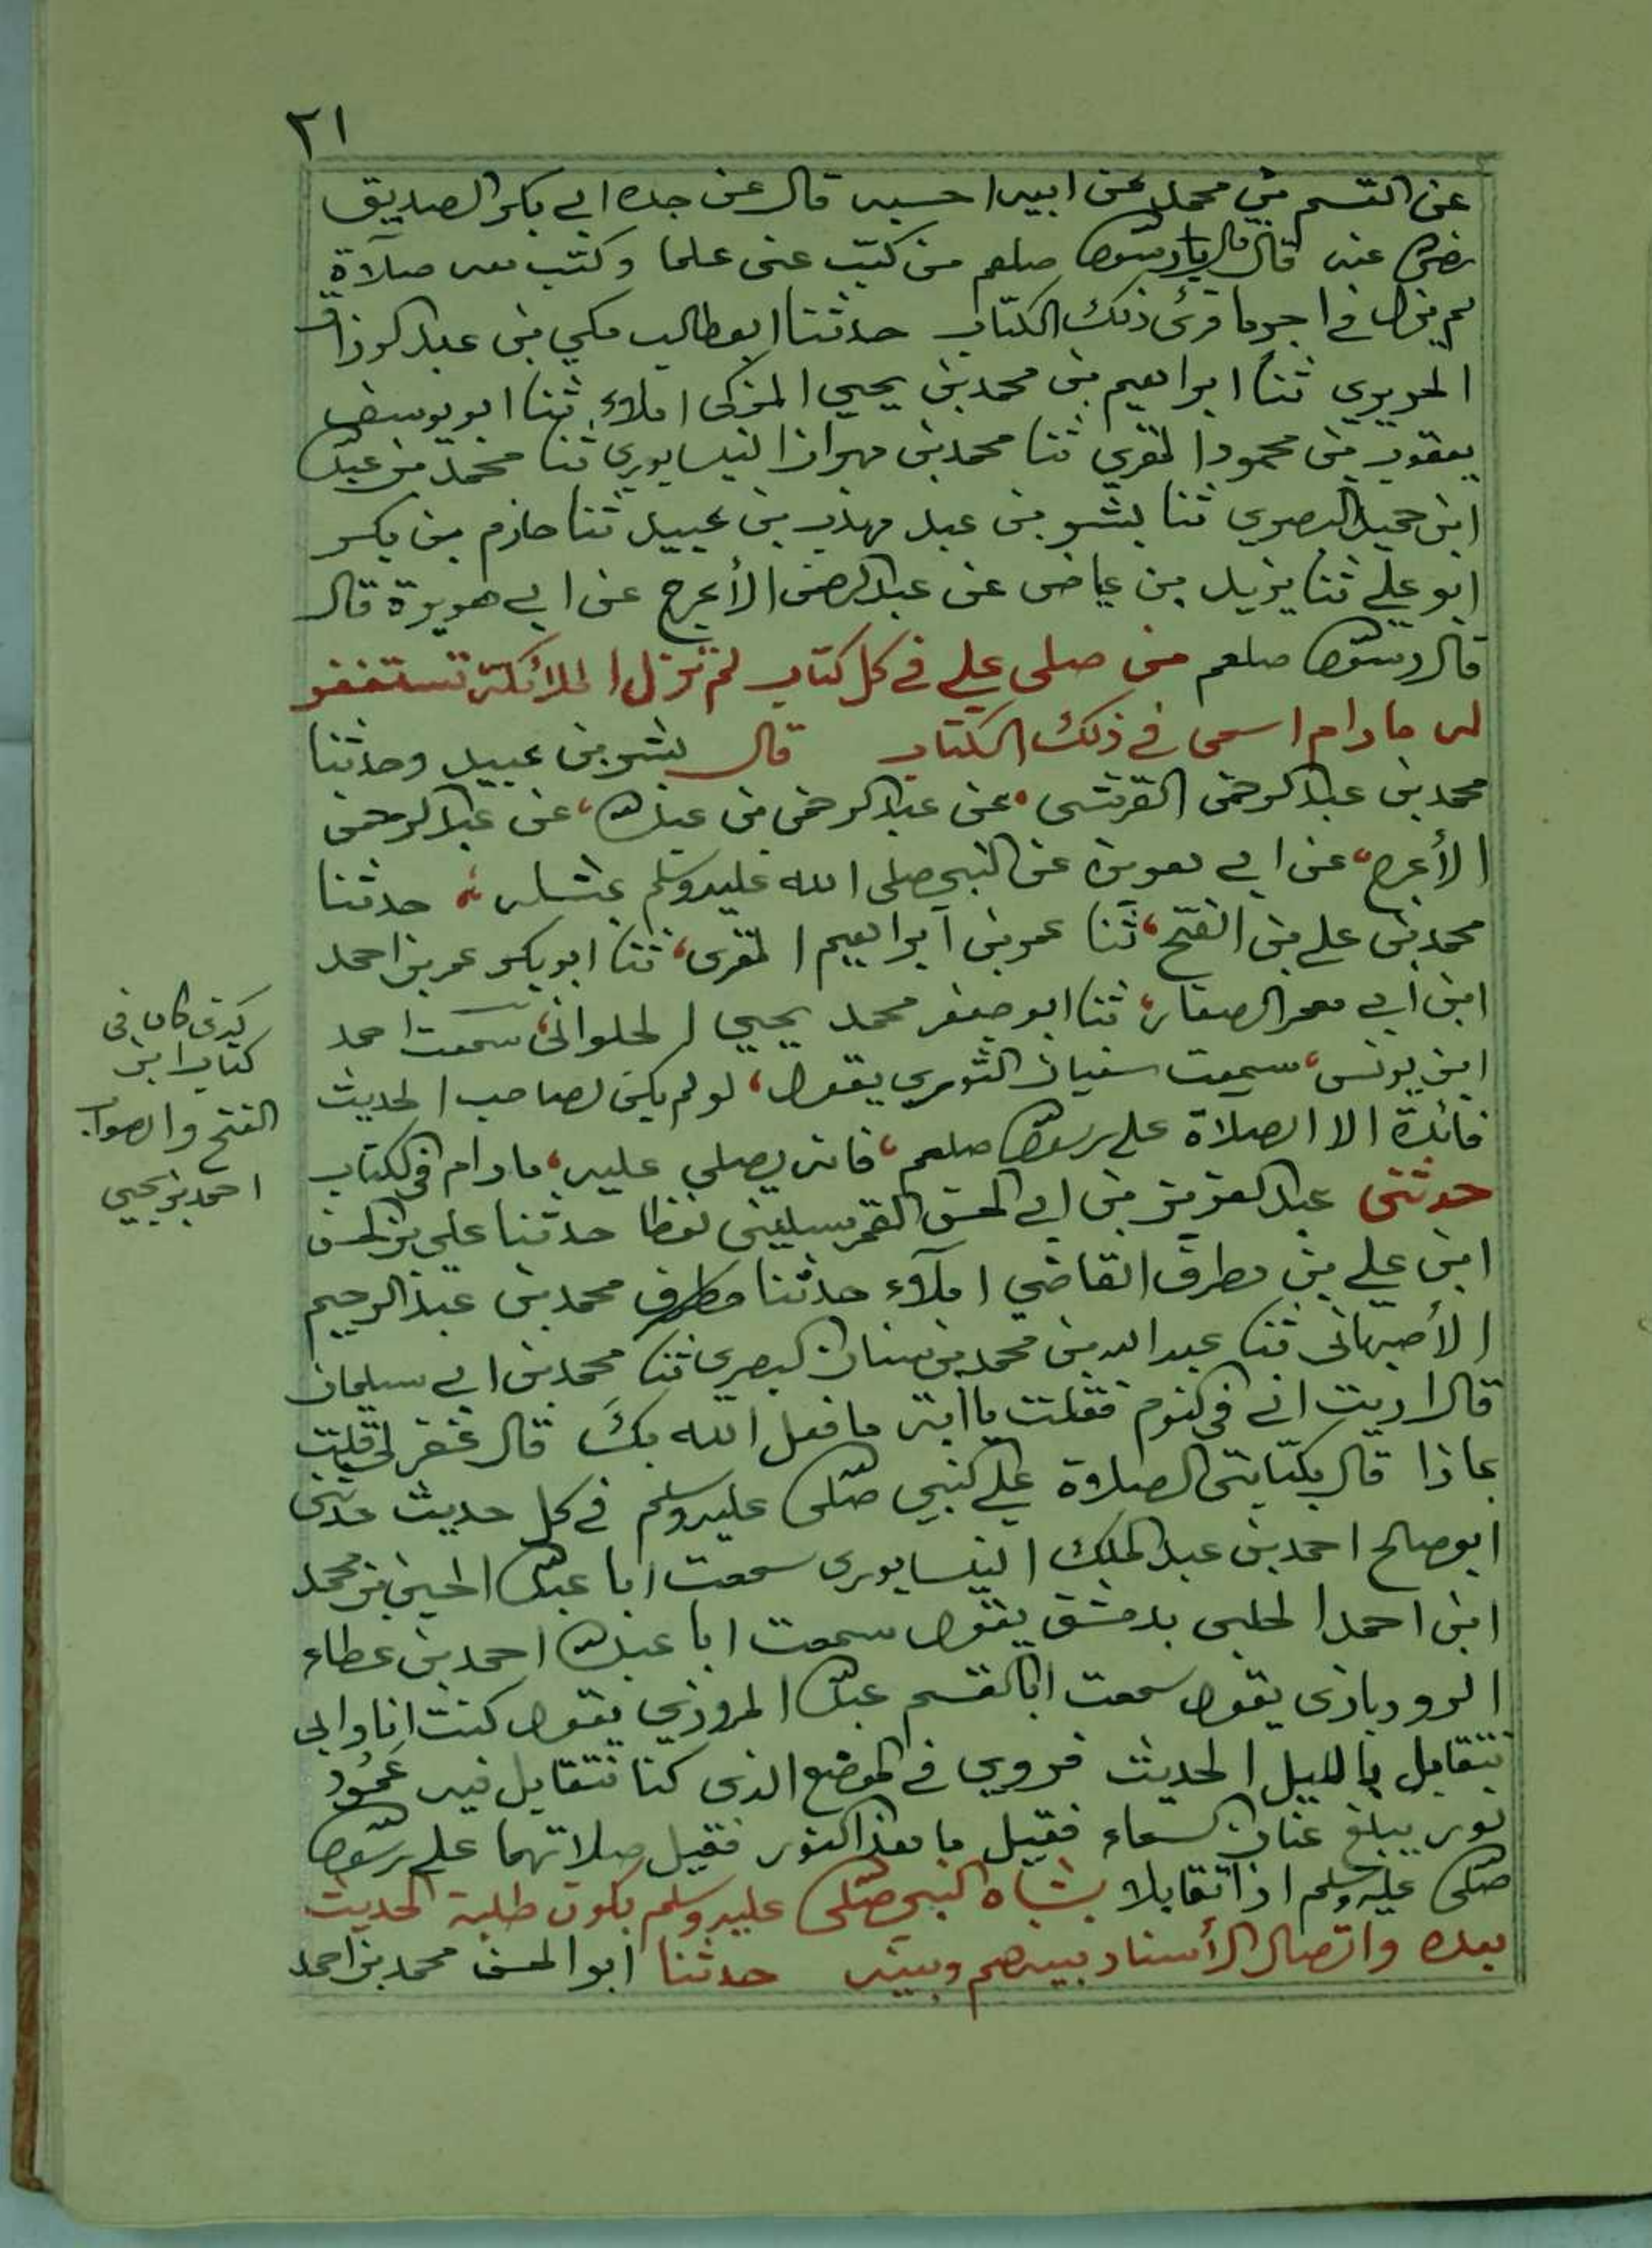 ٢١
عن القسم بن محمد عن ابيه احسبه قال عن جده ابي بكر الصديق
عنه قال قال رسول صلعم من كتب عني علما وكتب معه صلاة
لم يزل في اجر ما قرئ ذلك الكتاب حدثنا ابو طالب مكي بن عبد الرزاق
الحريري ثنا ابراهيم بن محمد بن يحيي المزكى املاء ثنا ابو يوسف
يعقوب بن محمود المقري ثنا محمد بن مهران النيسابوري ثنا محمد بن عبد
ابن حميد البصري ثنا بشر بن عبد مهذب بن عبيد ثنا حازم بن بكر
ابو علي ثنا يزيد بن عياض عن عبد الرحمن الأعرج عن ابي هريرة قال
قال رسول صلعم من صلى علي في كل كتاب لم تزل الملائكة تستغفر
له ما دام اسمى في ذلك الكتاب قال بشر بن عبيد وحدثنا
محمد بن عبد الرحمن القرشى، عن عبد الرحمن بن عبد الله، عن عبد الرحمن
الأعرج، عن ابي هريرة عن النبي صلى الله عليه وسلم بمثله حدثنا
محمد بن علي بن الفتح، ثنا عمر بن ابراهيم المقرى، ثنا ابو بكر عمر بن احمد
ابن أبي معمر الصفار، ثنا ابو جعفر محمد يحيي الحلوانى، سمعت احمد
ابن يونس، سمعت سفيان الثوري يقول، لو لم يكن لصاحب الحديث
فائدة الا الصلاة على رسول صلعم، فانه يصلي عليه، ما دام في الكتاب
حدثنى عبد العزيز بن ابي الحسن القرميسيني لفظا حدثنا علي بن الحسن
ابن علي بن مطرف القاضي املاء حدثنا مطرف محمد بن عبد الرحيم
الأصبهانى ثنا عبد الله بن محمد بن سنان البصرى ثنا محمد بن ابي سليمان
قال رايت ابي في النوم فقلت يا ابته ما فعل الله بك قال غفر لي قلت
بماذا قال بكتابتى الصلاوة على النبي صلى عليه وسلم في كل حديث حدثني
ابو صالح احمد بن عبد الملك النيسابورى سمعت ابا عبد الله الحسين بن محمد
ابن احمد الحلبى بدمشق يقول سمعت ابا عبد الله احمد بن عطاء
الروذبازى يقول سمعت ابا القسم عبد الله المروزي يقول كنت انا وابى
نتقابل بالليل الحديث فروي في الموضع الذى كنا نتقابل فيه عمود
نور يبلغ عنان السماء فقيل ما هذا النور فقيل صلاتهما على رسول
صلى عليه وسلم اذا تقابلا بشاه النبي صلى عليه وسلم بكون طلبة الحديث
بعده واتصال الأسناد بينهم وبينه حدثنا ابو الحسن محمد بن احمد
كذى كان فى
كتاب ابن
الفتح والصواب
احمد بن يحيي